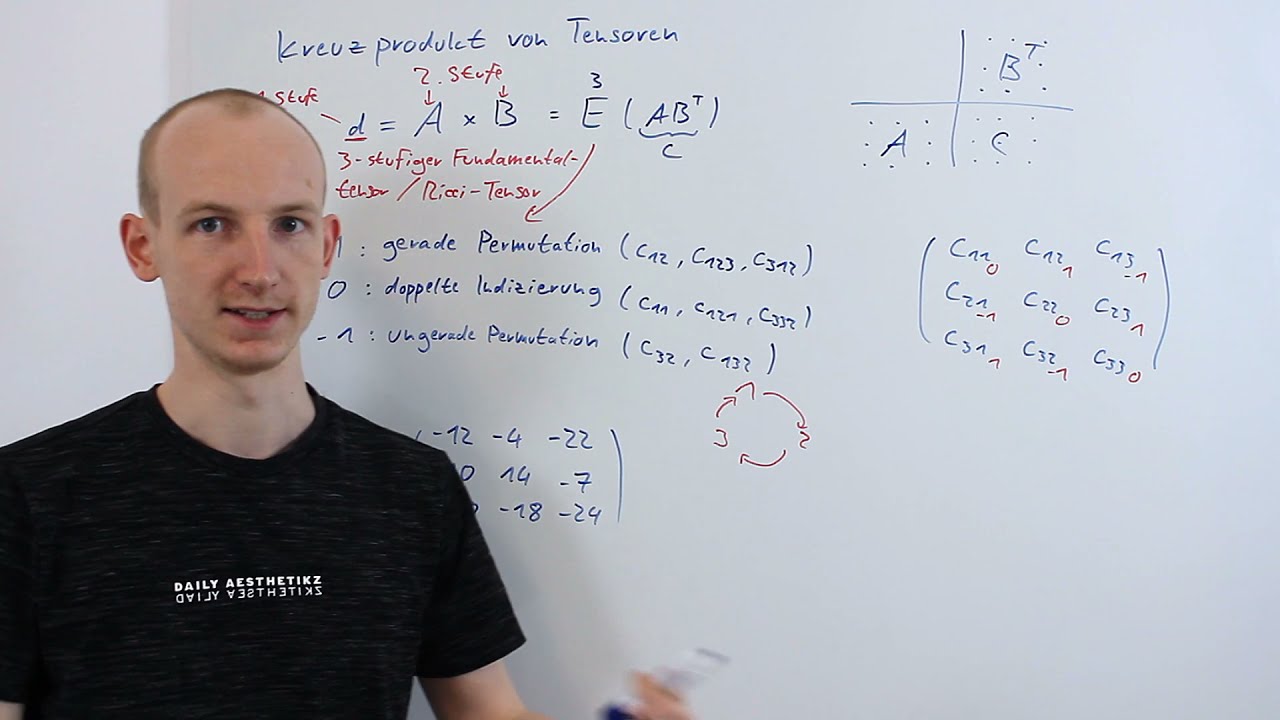 Kreuzprodukt von Tensoren
2. Stufe
Stufe
d = A × B = E³ (AB^T)
C
3-stufiger Fundamental-
tensor / Ricci-Tensor
1 : gerade Permutation (c₁₂, c₁₂₃, c₃₁₂)
0 : doppelte Indizierung (c₁₁, c₁₂₁, c₃₃₂)
-1 : ungerade Permutation (c₃₂, c₁₃₂)
-12 -4 -22
0 14 -7
-18 -24
1
3 2
B^T
A C
C₁₁ 0 C₁₂ 1 C₁₃ -1
C₂₁ -1 C₂₂ 0 C₂₃ 1
C₃₁ 1 C₃₂ -1 C₃₃ 0
DAILY AESTHETIKZ
DAILY AESTHETIKZ